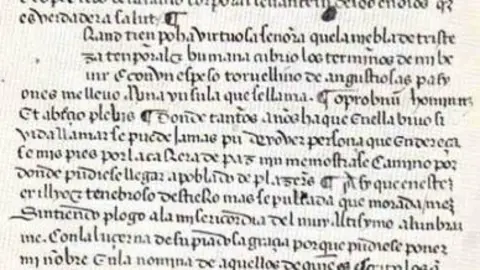 con verdadera salut ¶
Grand tienpo ha virtuosa señora que la niebla de triste
za tenporal e humana cubrio los terminos de mi be
uir e con vn espeso toruellino de angustiosas pasy
ones me lleuo a vna ynsula que se llama ¶ oprobriuз hominuз
Et abiecio plebis ¶ Donde tantos años ha que en ella biuo si
vida llamar se puede jamas pude yo ver persona que endereça
se mis pies por la carrera de paz nin me mostrase camino por
donde pudiese llegar a poblado de plazeres ¶ Asy que en este
exillyo e tenebroso destierro mas sepultada que morada me
Sintiendo plogo a la misericordia del muy altysimo alunbrar
me Con la lucerna de su piadosa graçia porque pudiese poner
mi nonbre en la nomina de aquellos de quien es